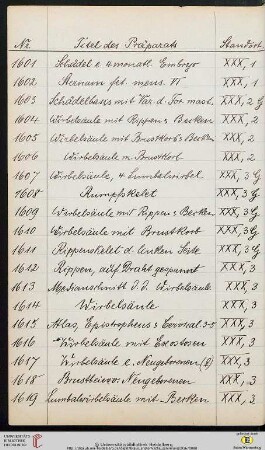 Nr. Titel des Präparats Standort
1601 Schädel e. 4 monatl. Embryo XXX, 1
1602 Sternum fet. mens. VI XXX, 1
1603 Schädelbasis mit Var. d. For. mast. XXX, 2 G
1604 Wirbelsäule mit Rippen & Becken XXX, 2 G
1605 Wirbelsäule mit Brustkorb & Becken XXX, 2
1606 Wirbelsäule m. Brustkorb XXX, 2
1607 Wirbelsäule, 4 Lumbalwirbel XXX, 3 G
1608 Rumpfskelet XXX, 3 G
1609 Wirbelsäule mit Rippen & Becken XXX, 3 G
1610 Wirbelsäule mit Brustkorb XXX, 3 G
1611 Rippenskelet d. linken Seite XXX, 3 G
1612 Rippen, auf Draht gespannt XXX, 3
1613 Medianschnitt d. d. Wirbelsäule XXX, 3
1614 Wirbelsäule XXX, 3
1615 Atlas, Epistropheus & Cervical 3-5 XXX, 3
1616 Wirbelsäule mit Exostosen XXX, 3
1617 Wirbelsäule e. Neugeborenen XXX, 3
1618 Brustbein v. Neugeborenen XXX, 3
1619 Lumbalwirbelsäule mit Becken XXX, 3
UNIVERSITÄTS-
BIBLIOTHEK
HEIDELBERG
© Universitätsbibliothek Heidelberg